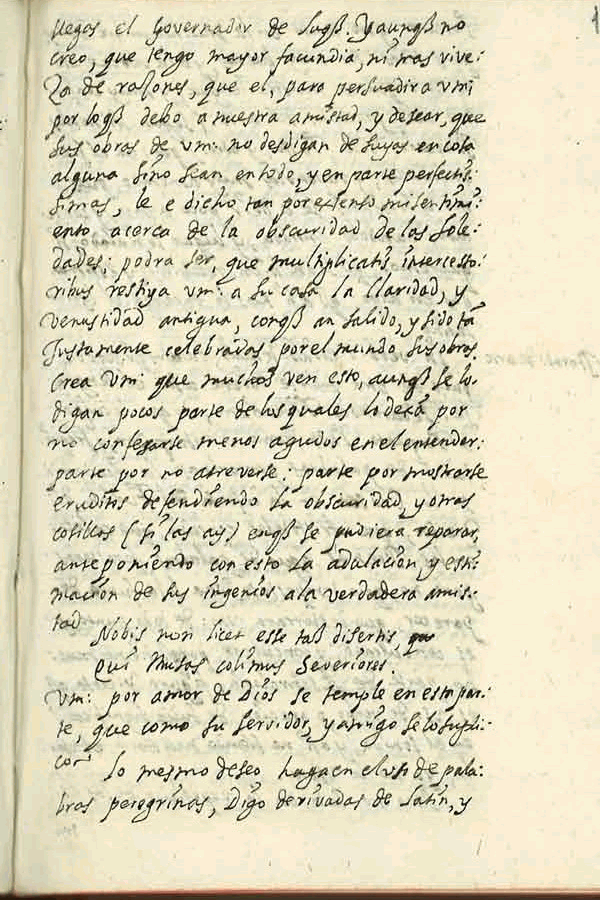 llegas el Governador de lugß. Y aunqß no
creo, que tengo mayor facundia, ni mas vive:
Za de razones, que el, para persuadir a vm;
por loqß debo a nuestra amistad, y desear, que
sus obras de vm. no desdigan de suyas en cosa
alguna sino sean entodo, y en parte perfectis:
simas, le e dicho tan por extenso mi sentimi:
ento acerca de la obscuridad de las Sole:
dades; podra ser, que multiplicatis intercesso:
ribus restiya vm: a su casa la llaridad, y
venustidad antigua, conqß an salido, y sido tã
Justamente celebradas por el mundo sus obras.
Crea Vm: que muchos ven esto, aunqß se lo
digan pocos parte de los quales lo dexã por
no confesarse menos agudos en el entender:
parte por no atreverse: parte por mostrarse
eruditos defendiendo la obscuridad, y otras
cosillas (si las ay) enqß se pudiera reparar,
anteponiendo con esto la adulacion, y esti:
macion de sus ingenios a la verdadera amis:
tad
Nobis non licet esse taß disertis,
Qui Musas colimus Severiores.
Vm: por amor de Dios se temple en esta par:
te, que como su servidor, y amigo se lo supli:
co.
Lo mesmo deseo haga en el uso de pala:
bras peregrinas, Digo derivadas de Latin, y